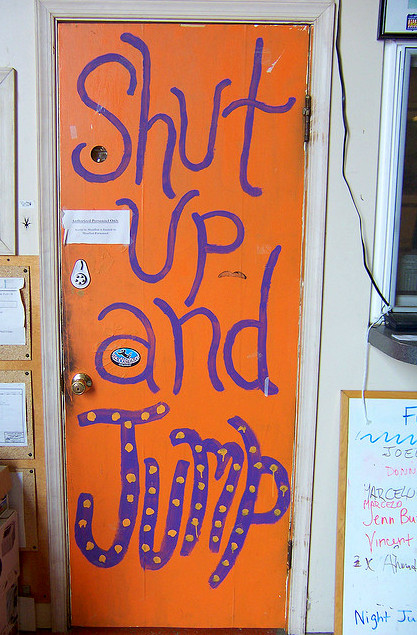 Shut
Up
and
Jump
Authorized Personnel Only
JOE
DONN
MARCELO
MARCELO
Jenn Bu
Vincent
Night Ju